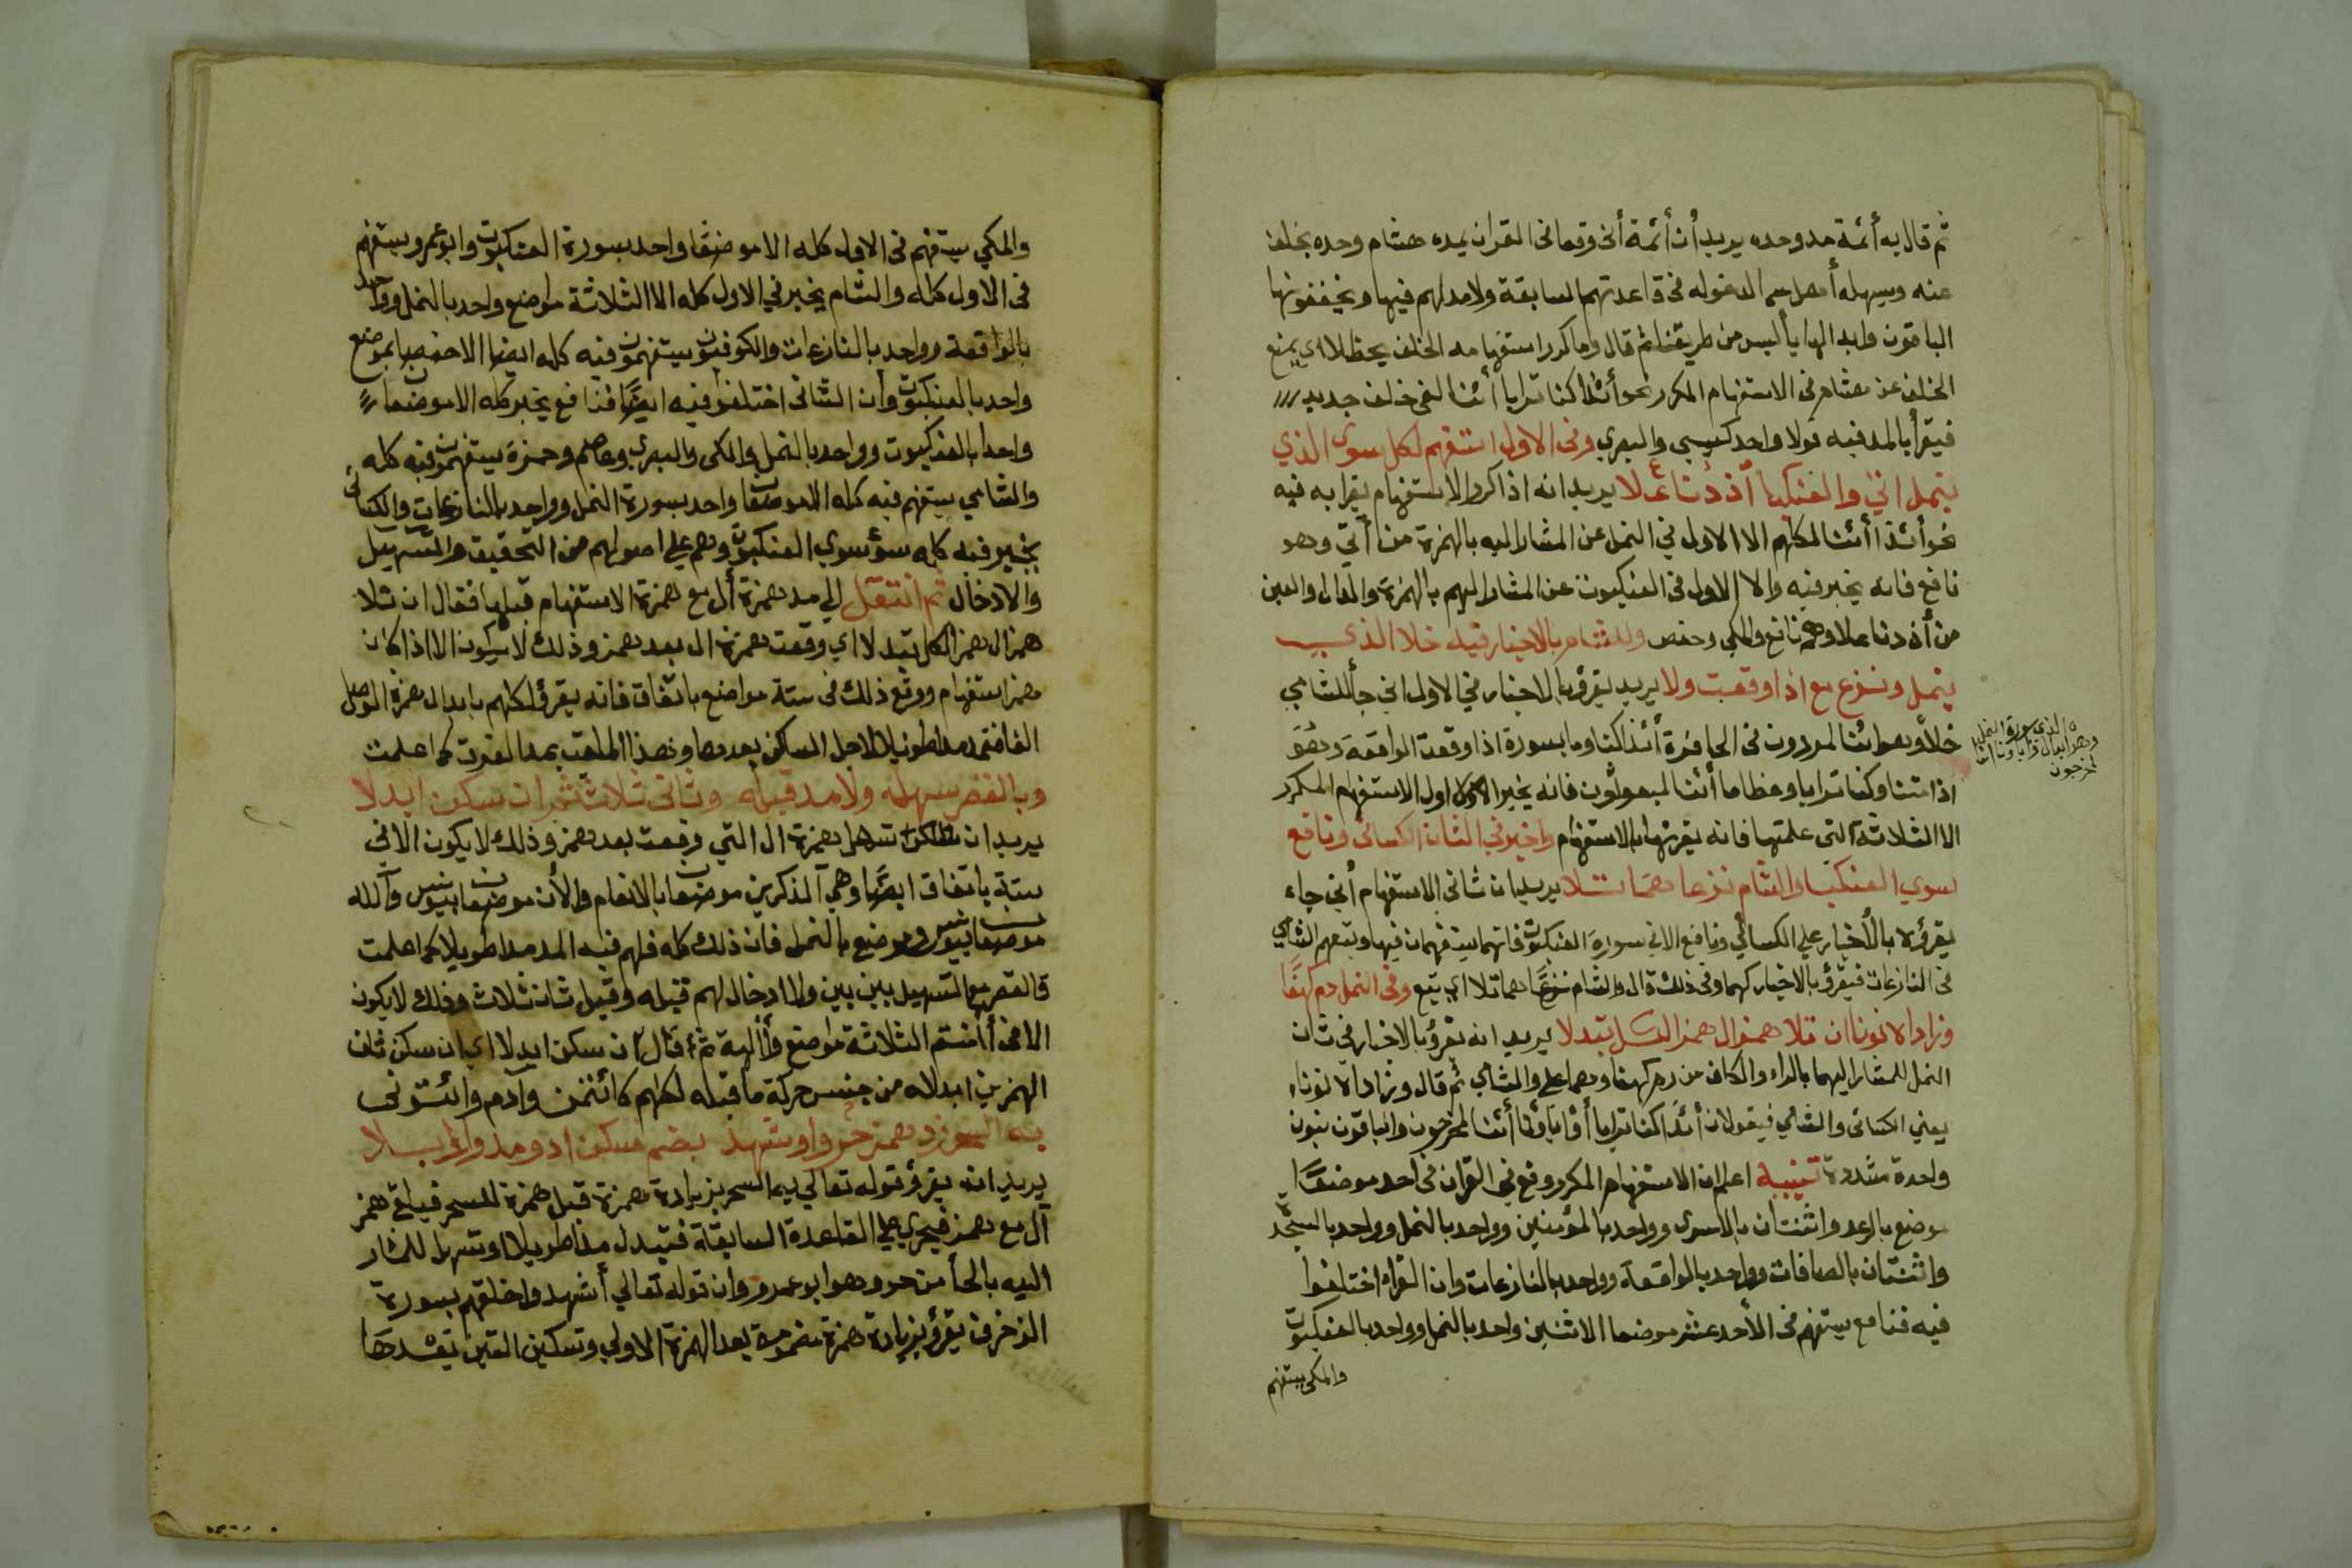 ثم قال به أئمة مد وحده يريد أن أئمة أنى وقعا فى القران يمده هشام وحده بخلف
عنه ويسهله أهل سما المدغوله فى قاعدتهم السابقة ولا مد لهم فيها ويخففونها
الباقون وابدالها يا ليس من طريقنا ثم قال وما كرر استفهامه الخلف يحظلا اى يمنع
الخلف عن هشام فى الاستفهام المكرر نحو أئذا كنا ترابا أئنا لفى خلق جديد
فيقرأ بالمد فيه قولا واحدا كعيسى والبصري وفى الاول استفهم لكل سوى الذي
بنمل اتى والعنكبا أئذ دنا علا يريد انه اذا كرر الاستفهام يقرا به فيه
نحو أئذا أئنا لكلهم الا الاول فى النمل عن المشار اليه بالهمزة من أتى وهو
نافع فانه يخبر فيه والا الاول فى العنكبوت عن المشار اليهم بالهمزة والدال والعين
من أئذ دنا علا وهم نافع والمكي وحفص وللشام بالاخبار فيه خلا الذي
بنمل ونزع مع اذا وقعت ولا يريد يقرؤ بالاخبار في الاول انى جا للشامي
خلا وهو ائنا لمردودن فى الحافرة أئذا كنا وما بسورة اذا وقعت الواقعة وهو
اذا متنا وكنا ترابا وعظاما أئنا لمبعوثون فانه يخبر اول الاستفهام المكرر
الا الثلاثة التى علمتها فانه يقرئها بالاستفهام واخبر في الثان الكسائى ونافع
سوي العنكبا والشام نزعا هما تلا يريد ان ثانى الاستفهام أنى جاء
يقرؤه بالأخبار علي الكسائي ونافع الا فى سورة العنكبوت فانهما يستفهمان فيها وتبعهم الشامي
فى النازعات فيقرؤ بالاخبار كهما وفى ذلك قال والشام نزعا هما تلا اي تبع وفى النمل دم كهفا
وزاداه نونا ان تلا همز ال همز الكل ابتدلا يريد انه يقرؤ بالاخبار فى ثان
النمل للمشار اليهما بالراء والكاف من رم كهفا وهما علي والشامي ثم قال وزاداه نونا
يعني الكسائى والشامي فيقولان أئذا كنا ترابا أو اباؤنا أئننا لمخرجون والباقون بنون
واحدة مشددة تنبيه اعلم ان الاستفهام المكرر وقع في القران فى احد موضعا
موضع بالرعد واثنتان بالاسرى وواحد بالمؤمنين وواحد بالنمل وواحد بالسجدة
واثنتان بالصافات وواحد بالواقعة وواحد بالنازعات وان القراء اختلفوا
فيه فنافع يستفهم فى الأحد عشر موضعا الا اثنين واحد بالنمل وواحد بالعنكبوت
والمكى يستفهم
الذي سورة النمل
وهو
لمخرجون
والمكي يستفهم فى الاول كله الا موضعا واحد بسورة العنكبوت وابو عمرو يستفهم
فى الاول كله والشام يخبر في الاول كله الا الثلاثة مواضع واحد بالنمل وواحد
بالواقعة وواحد بالنازعات والكوفيون يستفهمون فيه كله ايضا الا حفصا بموضع
واحد بالعنكبوت وان الثانى اختلفوا فيه ايضا فنافع يخبر كله الا موضعان
واحدا بالعنكبوت وواحد بالنمل والمكى والبصري وعاصم وحمزة يستفهمون فيه كله
والشامي يستفهم فيه كله الا موضعا واحد بسورة النمل وواحد بالنازعات والكسائى
يخبر فيه كله سوى العنكبوت وهم علي اصولهم من التحقيق والتسهيل
والادخال ثم انتقل الي مد همزة أل مع همزة الاستفهام قبلها فقال ان تلا
همز ال همز الكل ابتدلا اي وقعت همزة ال بعد همز وذلك لا يكون الا اذا كان
همز استفهام ووقع ذلك فى ستة مواضع باتفاق فانه يقرؤ لكلهم بابدال همزة الوصل
الفا فتمد مدا طويلا لاجل الساكن بعدها وهذا الملقب بمد الفرق كما علمت
وبالقصر سهله ولا مد قبله وثانى ثلاث ثم ان سكن ابدلا
يريد ان تسهل همزة ال التي وقعت بعد همز وذلك لا يكون الا في
ستة باتفاق ايضا وهي آلذكرين موضعان بالانعام والأن موضعان بيونس وآلله
موضعان بيونس وموضع بالنمل فان ذلك كله فلهم فيه المد مدا طويلا كما علمت
فالقصر مع التسهيل بين بين ولا ادخال لهم قبله وقيل ثان ثلاث وذلك لا يكون
الا فى أأمنتم الثلاثة مواضع وأألهة ثم قال ان سكن ابدلا اي ان سكن ثان
الهمزين ابدلاه من جنس حركة ما قبله لكلهم كأئتمن وآدم وائتونى
به السحر زد همز حز واو شهد بضم مسكن ادو مد
يريد انه يقرؤ قوله تعالي به السحر بزيادة همزة قبل همزة السحر فيبقى همز
ال مع همز فيجري علي القاعدة السابقة فتبدل مدا طويلا او تسهل للمشار
اليه بالحا من حز وهو ابو عمرو وان قوله تعالي أشهدوا خلقهم بسورة
الزخرف يقرؤ بزيادة همزة مضمومة بعد الهمزة الاولي وتسكين الشين